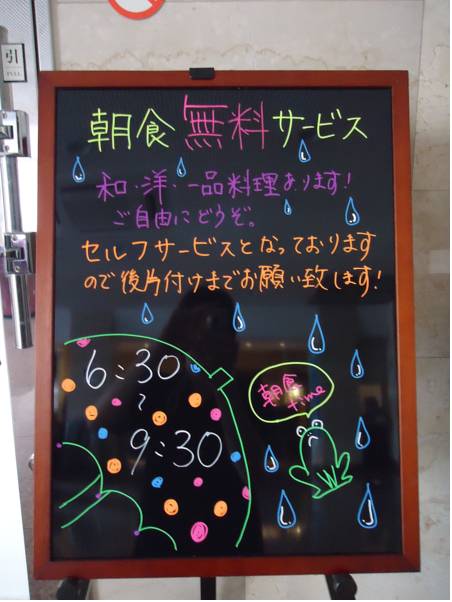 引
PULL
朝食無料サービス
和・洋・一品料理あります!
ご自由にどうぞ。
セルフサービスとなっております
ので後片付けまでお願い致します!
6:30
〜
9:30
朝食
time